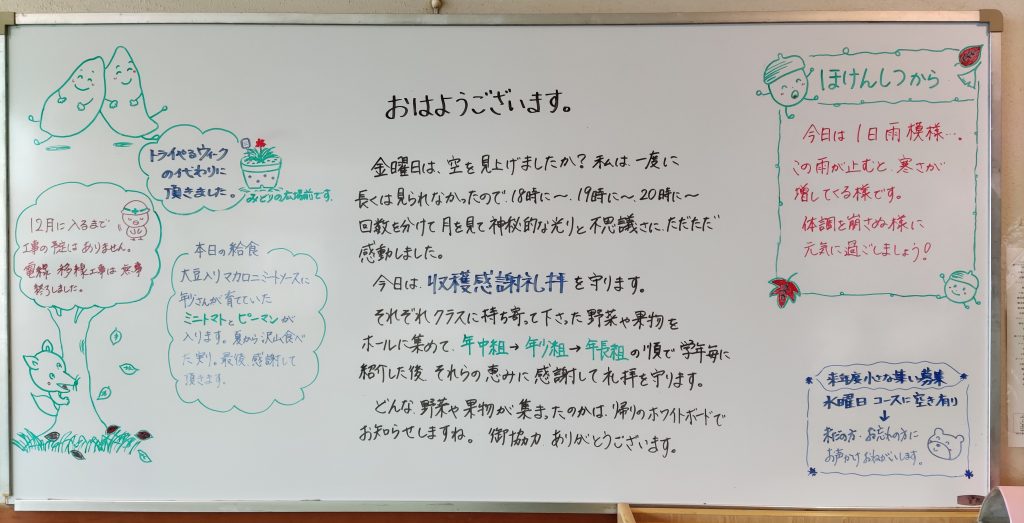 おはようございます。
金曜日は、空を見上げましたか？私は一度に
長くは見られなかったので、18時に〜、19時に〜、20時に〜
回数を分けて月を見て神秘的な光りと不思議さに、ただただ
感動しました。
今日は、収穫感謝礼拝を守ります。
それぞれクラスに持ち寄って下さった野菜や果物を
ホールに集めて、年中組→年少組→年長組の順で学年毎に
紹介した後、それらの恵みに感謝して礼拝を守ります。
どんな野菜や果物が集まったのかは、帰りのホワイトボードで
お知らせしますね。御協力ありがとうございます。
トライやるウィーク
の代わりに
頂きました。
みどりの広場前です。
12月に入るまで
工事の予定はありません。
電線移線工事は無事
終了しました。
本日の給食
大豆入りマカロニミートソースに
年少さんが育てていた
ミニトマトとピーマンが
入ります。夏から沢山食べ
た実り。最後、感謝して
頂きます。
ほけんしつから
今日は1日雨模様…。
この雨が止むと、寒さが
増してくる様です。
体調を崩さぬ様に
元気に過ごしましょう！
来年度小さな集い募集
水曜日コースに空き有り
↓
未だの方・お忘れの方に
お声かけおねがいします。